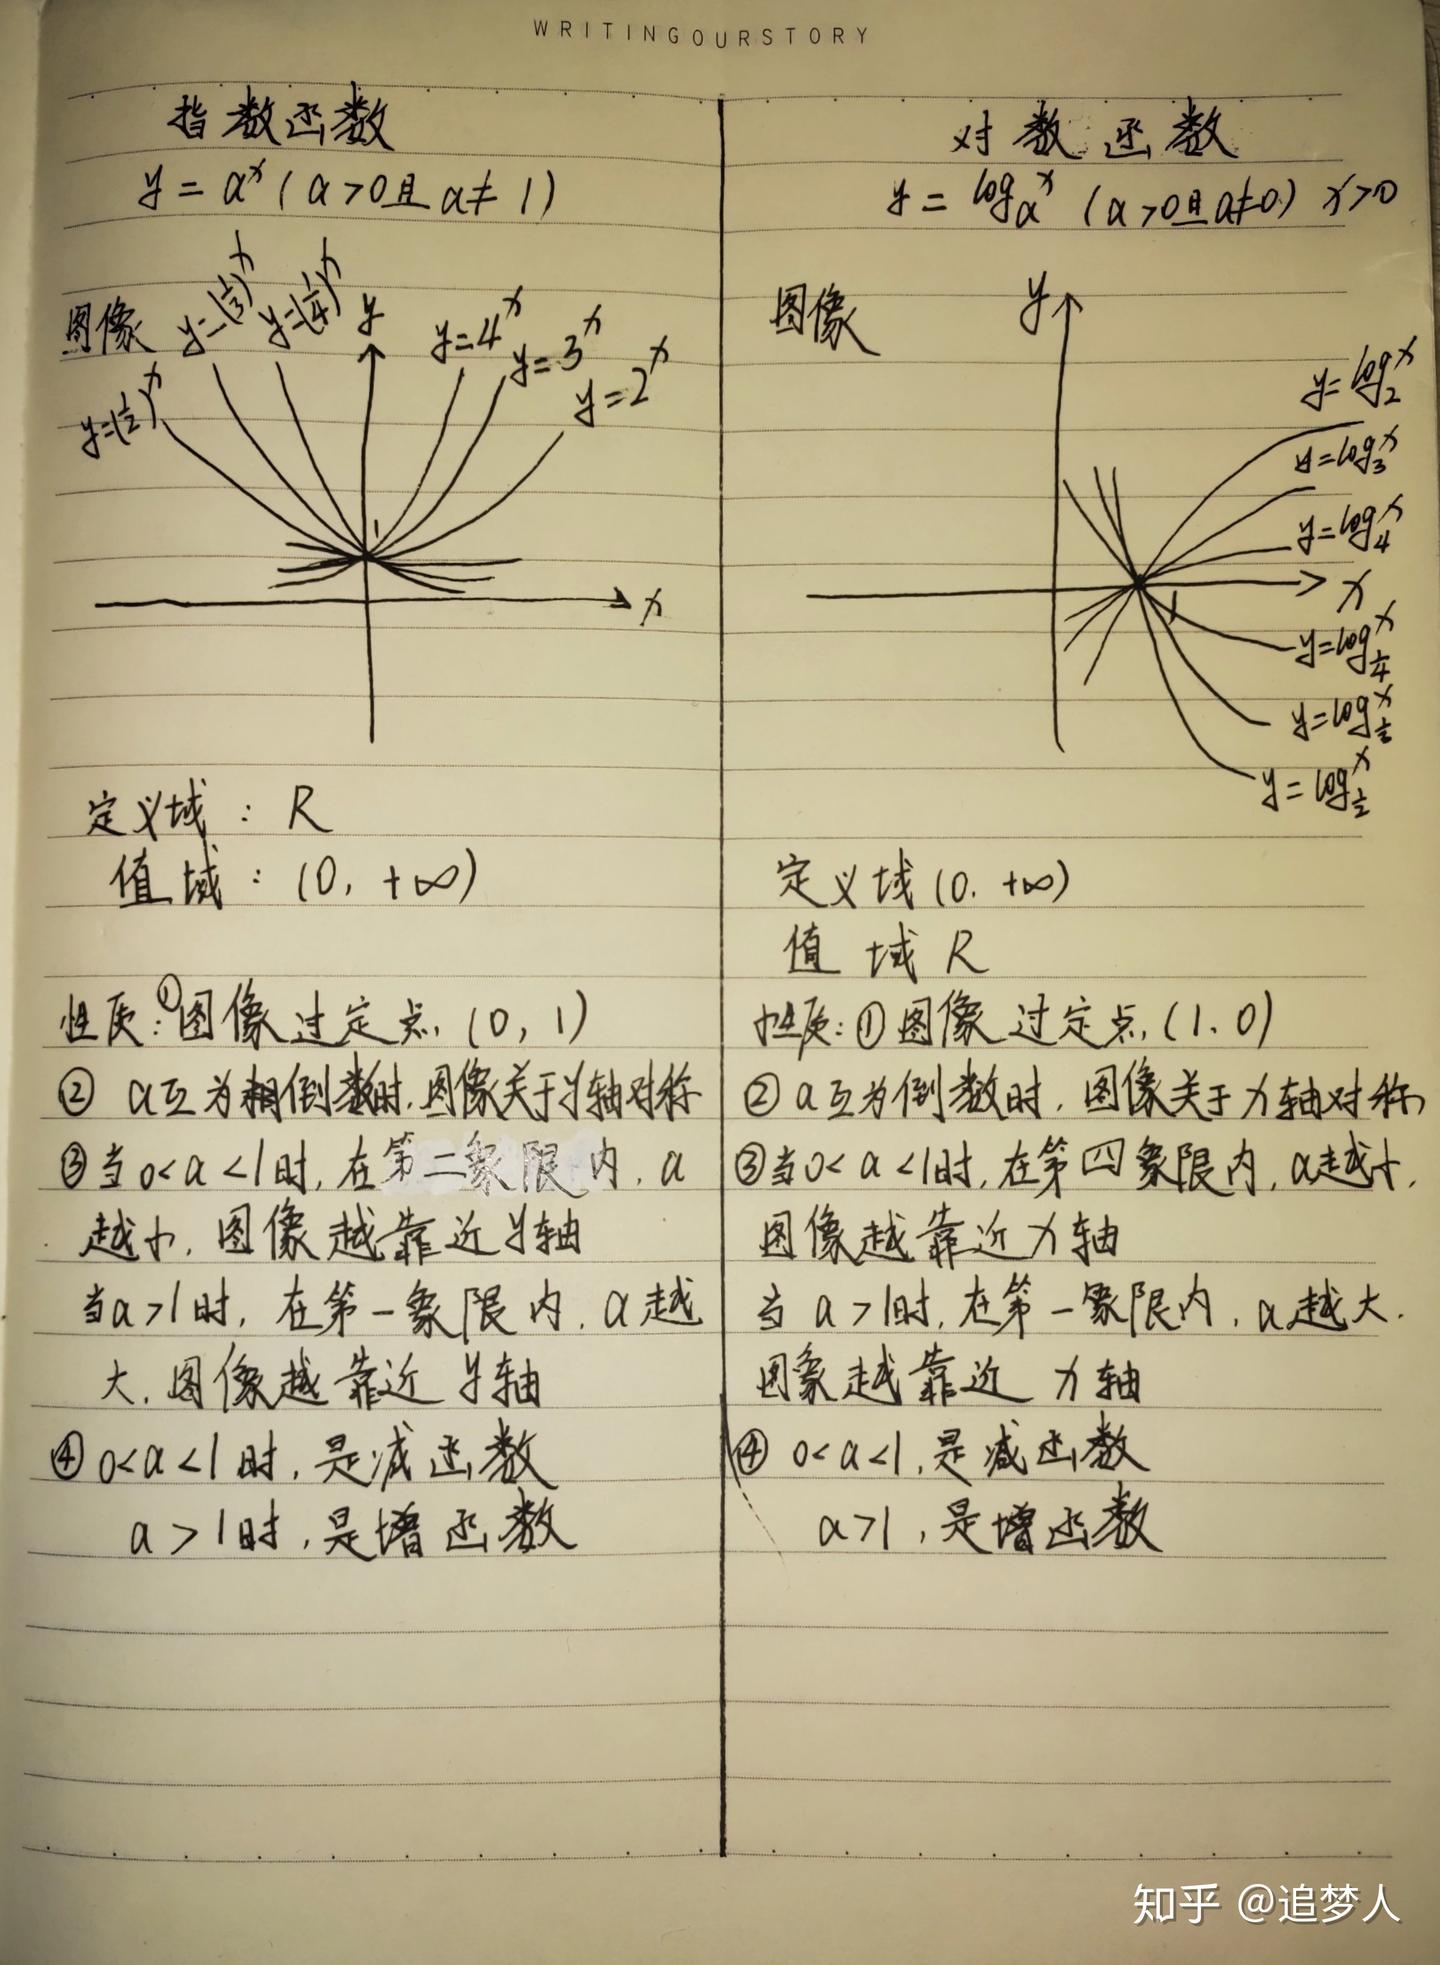 WRITINGOURSTORY
指数函数
y = a^x (a>0且a≠1)
图像
y=(1/2)^x
y=(1/3)^x
y=(1/4)^x
y
y=4^x
y=3^x
y=2^x
1
x
定义域：R
值域：(0, +∞)
性质：①图像过定点(0, 1)
② a互为相倒数时,图像关于y轴对称
③当0<a<1时,在第二象限内,a
越小,图像越靠近y轴
当a>1时,在第一象限内,a越
大,图像越靠近y轴
④0<a<1时,是减函数
a>1时,是增函数
对数函数
y = log_a^x (a>0且a≠0) x>0
图像
y
y=log_2^x
y=log_3^x
y=log_4^x
x
1
y=log_1/4^x
y=log_1/3^x
y=log_1/2^x
定义域(0, +∞)
值域R
性质：①图像过定点(1, 0)
②a互为倒数时,图像关于x轴对称
③当0<a<1时,在第四象限内,a越小,
图像越靠近x轴
当a>1时,在第一象限内,a越大,
图象越靠近x轴
④0<a<1,是减函数
a>1,是增函数
知乎 @追梦人